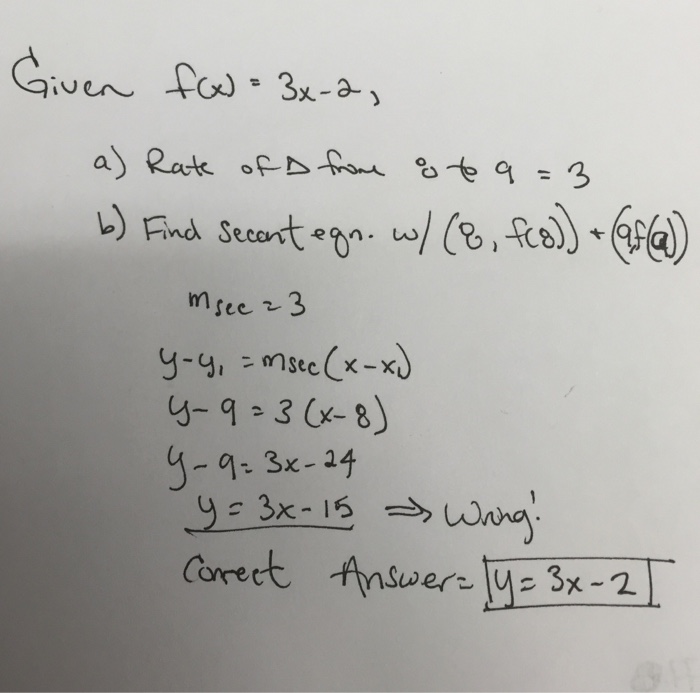 Given f(x) = 3x-2,
a) Rate of Δ from 8 to 9 = 3
b) Find Secant eqn. w/ (8, f(8)) + (9, f(9))
msec = 3
y-y₁ = msec(x-x₁)
y-9 = 3(x-8)
y-9 = 3x-24
y = 3x-15 ⇒ Wrong!
Correct Answer = y = 3x-2